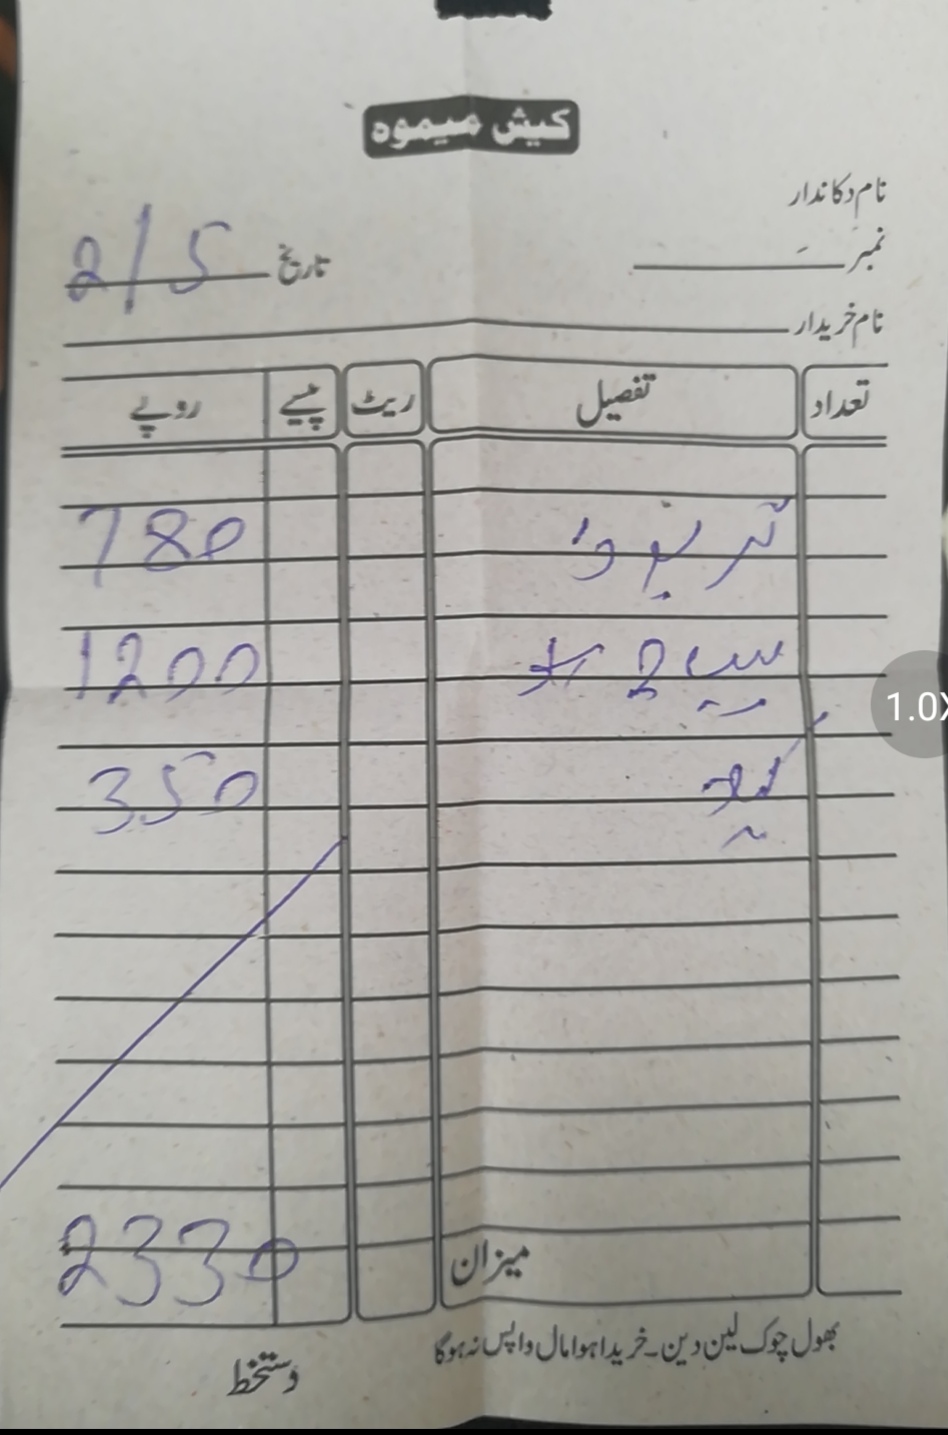 کیش میمو
نام دکاندار
نمبر
تاریخ 2/5
نام خریدار
تعداد تفصیل ریٹ پیسے روپے
تربوز 780
سیب 2 1200
350
میزان 2330
بھول چوک لین دین۔ خریدا ہوا مال واپس نہ ہوگا
دستخط
1.0X